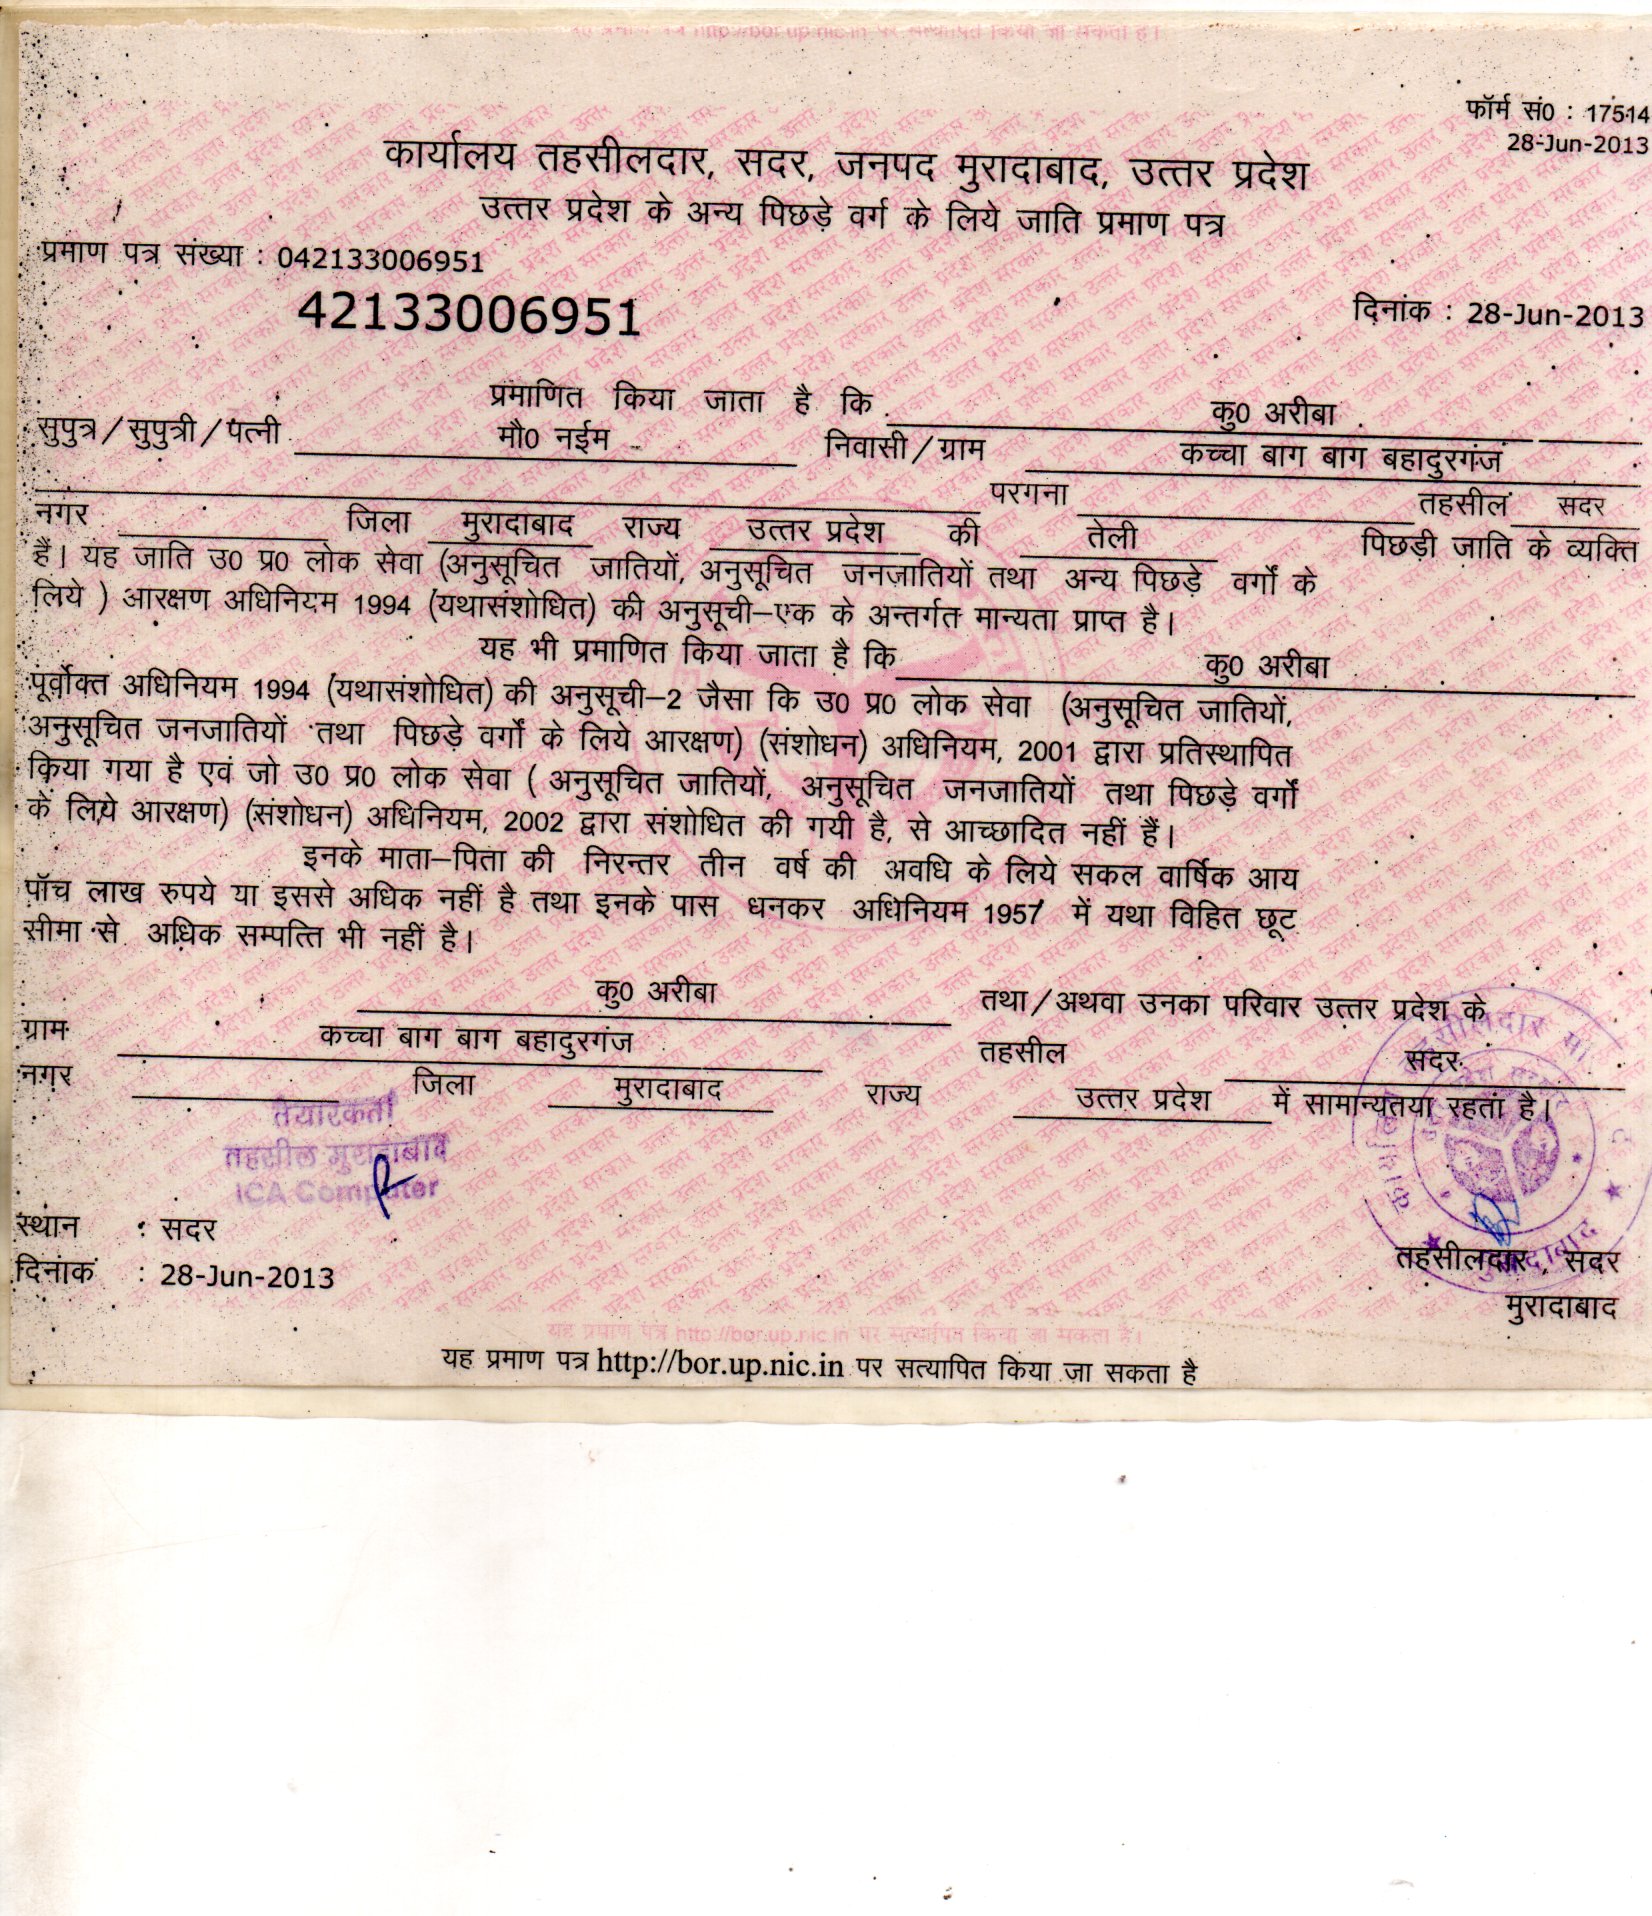 फॉर्म सं0 : 17514
28-Jun-2013
कार्यालय तहसीलदार, सदर, जनपद मुरादाबाद, उत्तर प्रदेश
उत्तर प्रदेश के अन्य पिछड़े वर्ग के लिये जाति प्रमाण पत्र
प्रमाण पत्र संख्या : 042133006951
42133006951
दिनांक : 28-Jun-2013
प्रमाणित किया जाता है कि कु0 अरीबा
सुपुत्र/सुपुत्री/पत्नी मौ0 नईम निवासी/ग्राम कच्चा बाग बाग बहादुरगंज
परगना तहसील सदर
नगर जिला मुरादाबाद राज्य उत्तर प्रदेश की तेली पिछड़ी जाति के व्यक्ति
हैं। यह जाति उ0 प्र0 लोक सेवा (अनुसूचित जातियों, अनुसूचित जनजातियों तथा अन्य पिछड़े वर्गों के
लिये ) आरक्षण अधिनियम 1994 (यथासंशोधित) की अनुसूची–एक के अन्तर्गत मान्यता प्राप्त है।
यह भी प्रमाणित किया जाता है कि कु0 अरीबा
पूर्वोक्त अधिनियम 1994 (यथासंशोधित) की अनुसूची–2 जैसा कि उ0 प्र0 लोक सेवा (अनुसूचित जातियों,
अनुसूचित जनजातियों तथा पिछड़े वर्गों के लिये आरक्षण) (संशोधन) अधिनियम, 2001 द्वारा प्रतिस्थापित
किया गया है एवं जो उ0 प्र0 लोक सेवा ( अनुसूचित जातियों, अनुसूचित जनजातियों तथा पिछड़े वर्गों
के लिये आरक्षण) (संशोधन) अधिनियम, 2002 द्वारा संशोधित की गयी है, से आच्छादित नहीं हैं।
इनके माता–पिता की निरन्तर तीन वर्ष की अवधि के लिये सकल वार्षिक आय
पॉच लाख रुपये या इससे अधिक नहीं है तथा इनके पास धनकर अधिनियम 1957 में यथा विहित छूट
सीमा से अधिक सम्पत्ति भी नहीं है।
कु0 अरीबा तथा/अथवा उनका परिवार उत्तर प्रदेश के
ग्राम कच्चा बाग बाग बहादुरगंज तहसील सदर
नगर जिला मुरादाबाद राज्य उत्तर प्रदेश में सामान्यतया रहता है।
तैयारकर्ता
तहसील मुरादाबाद
ICA Computer
स्थान : सदर
दिनांक : 28-Jun-2013
तहसीलदार , सदर
मुरादाबाद
यह प्रमाण पत्र http://bor.up.nic.in पर सत्यापित किया जा सकता है।
यह प्रमाण पत्र http://bor.up.nic.in पर सत्यापित किया जा सकता है